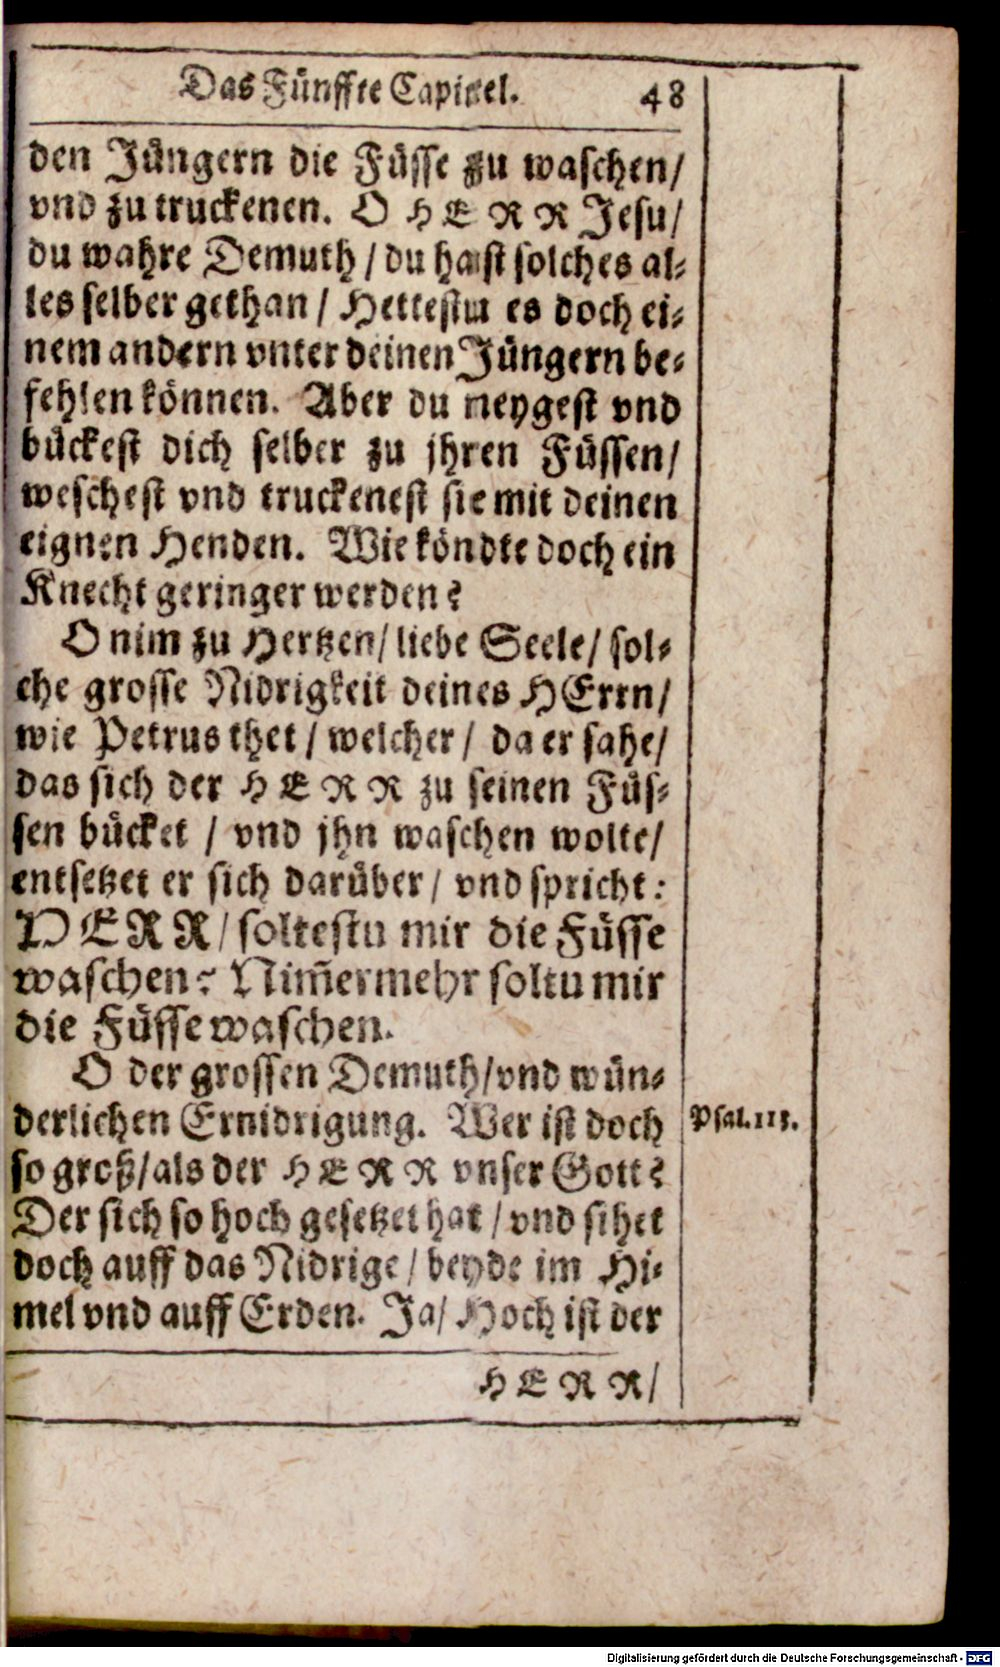 Das Fünffte Capitel. 48
den Jüngern die Füsse zu waschen/
vnd zu truckenen. O HERR Jesu/
du wahre Demuth / du hast solches al-
les selber gethan / Hettestu es doch ei-
nem andern vnter deinen Jüngern be-
fehlen können. Aber du neygest vnd
bückest dich selber zu jhren Füssen/
weschest vnd truckenest sie mit deinen
eignen Henden. Wie köndte doch ein
Knecht geringer werden?
O nim zu Hertzen/ liebe Seele/ sol-
che grosse Nidrigkeit deines HErrn/
wie Petrus thet / welcher / da er sahe/
das sich der HERR zu seinen Füs-
sen bücket / vnd jhn waschen wolte/
entsetzet er sich darüber / vnd spricht:
HERR/ soltestu mir die Füsse
waschen? Nim̃ermehr soltu mir
die Füsse waschen.
O der grossen Demuth/vnd wün-
derlichen Ernidrigung. Wer ist doch
Psal.113.
so groß/als der HERR vnser Gott?
Der sich so hoch gesetzet hat / vnd sihet
doch auff das Nidrige / beyde im Hi-
mel vnd auff Erden. Ja/ Hoch ist der
HERR/
Digitalisierung gefördert durch die Deutsche Forschungsgemeinschaft - DFG